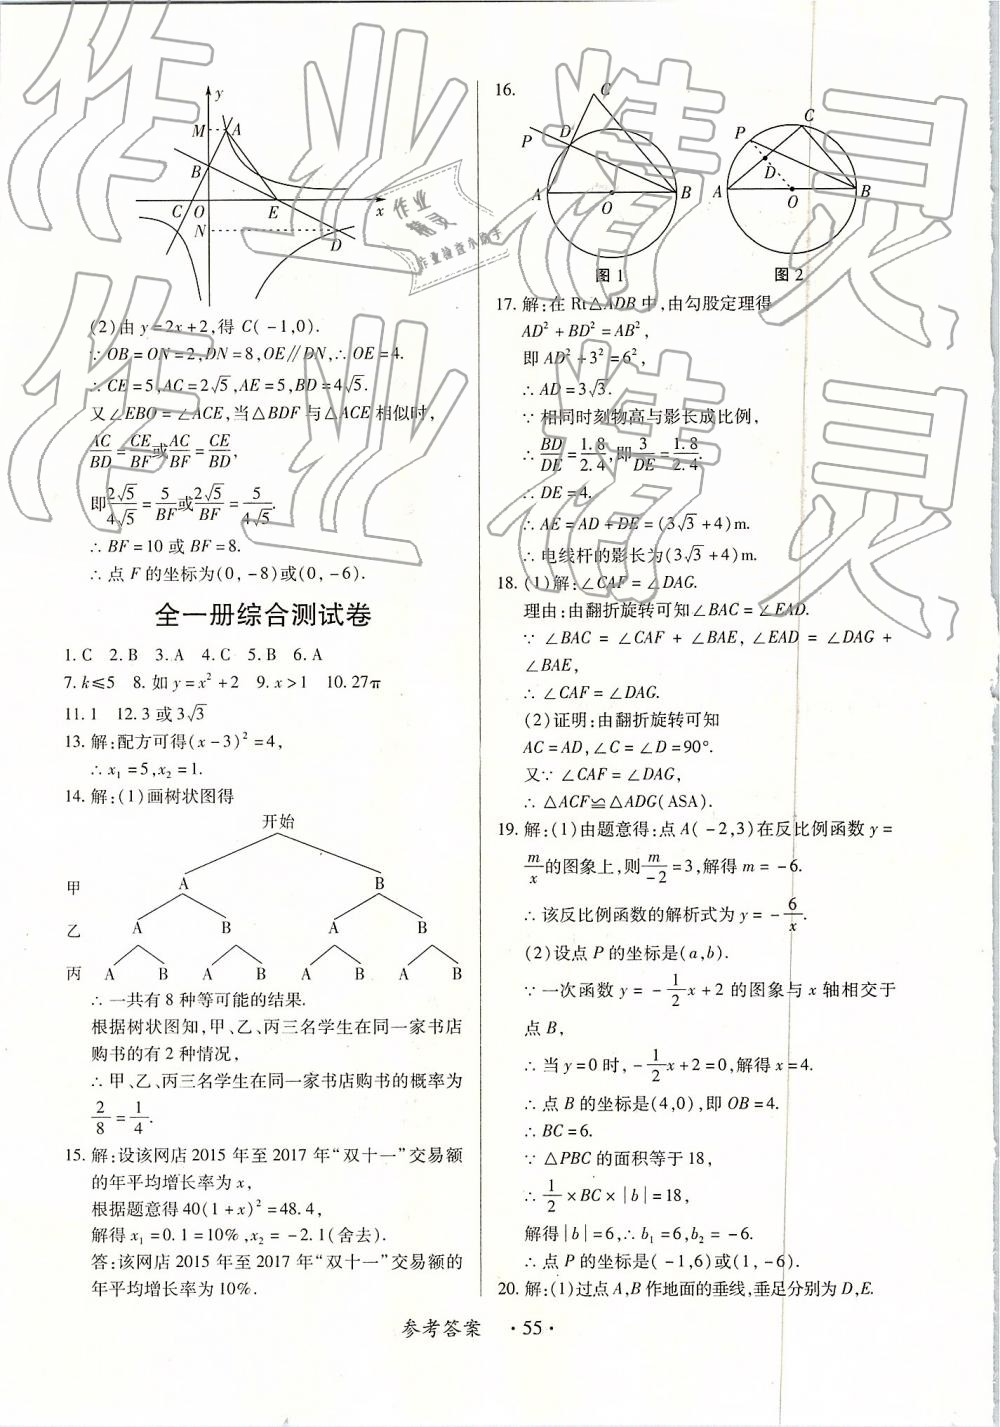 y
M
A
B
C
O
E
x
N
D
(2)由 y=2x+2,得 C(-1,0).
∵OB=ON=2,DN=8,OE∥DN,∴OE=4.
∴CE=5,AC=2√5,AE=5,BD=4√5.
又∠EBO=∠ACE,当△BDF 与△ACE 相似时,
AC/BD=CE/BF或AC/BF=CE/BD,
即2√5/4√5=5/BF或2√5/BF=5/4√5.
∴BF=10 或 BF=8.
∴点 F 的坐标为(0,-8)或(0,-6).
全一册综合测试卷
1.C 2.B 3.A 4.C 5.B 6.A
7.k≤5 8.如 y=x²+2 9.x>1 10.27π
11.1 12.3 或 3√3
13.解:配方可得(x-3)²=4,
∴x₁=5,x₂=1.
14.解:(1)画树状图得
开始
甲 A B
乙 A B A B
丙 A B A B A B A B
∴一共有 8 种等可能的结果.
根据树状图知,甲、乙、丙三名学生在同一家书店
购书的有 2 种情况,
∴甲、乙、丙三名学生在同一家书店购书的概率为
2/8=1/4.
15.解:设该网店 2015 年至 2017 年“双十一”交易额
的年平均增长率为 x,
根据题意得 40(1+x)²=48.4,
解得 x₁=0.1=10%,x₂=-2.1(舍去).
答:该网店 2015 年至 2017 年“双十一”交易额的
年平均增长率为 10%.
16.
C
D
P
A
B
O
图 1
C
P
D
A
B
O
图 2
17.解:在 Rt△ADB 中,由勾股定理得
AD²+BD²=AB²,
即 AD²+3²=6²,
∴AD=3√3.
∵相同时刻物高与影长成比例,
∴BD/DE=1.8/2.4,即3/DE=1.8/2.4.
∴DE=4.
∴AE=AD+DE=(3√3+4)m.
∴电线杆的影长为(3√3+4)m.
18.(1)解:∠CAF=∠DAG.
理由:由翻折旋转可知∠BAC=∠EAD.
∵∠BAC=∠CAF+∠BAE,∠EAD=∠DAG+
∠BAE,
∴∠CAF=∠DAG.
(2)证明:由翻折旋转可知
AC=AD,∠C=∠D=90°.
又∵∠CAF=∠DAG,
∴△ACF≌△ADG(ASA).
19.解:(1)由题意得:点 A(-2,3)在反比例函数 y=
m/x的图象上,则m/-2=3,解得 m=-6.
∴该反比例函数的解析式为 y=-6/x.
(2)设点 P 的坐标是(a,b).
∵一次函数 y=-1/2x+2 的图象与 x 轴相交于
点 B,
∴当 y=0 时,-1/2x+2=0,解得 x=4.
∴点 B 的坐标是(4,0),即 OB=4.
∴BC=6.
∵△PBC 的面积等于 18,
∴1/2×BC×|b|=18,
解得|b|=6,∴b₁=6,b₂=-6.
∴点 P 的坐标是(-1,6)或(1,-6).
20.解:(1)过点 A,B 作地面的垂线,垂足分别为 D,E.
参考答案 ·55·
作业精灵
作业精灵
作业
精灵
作业检查小助手